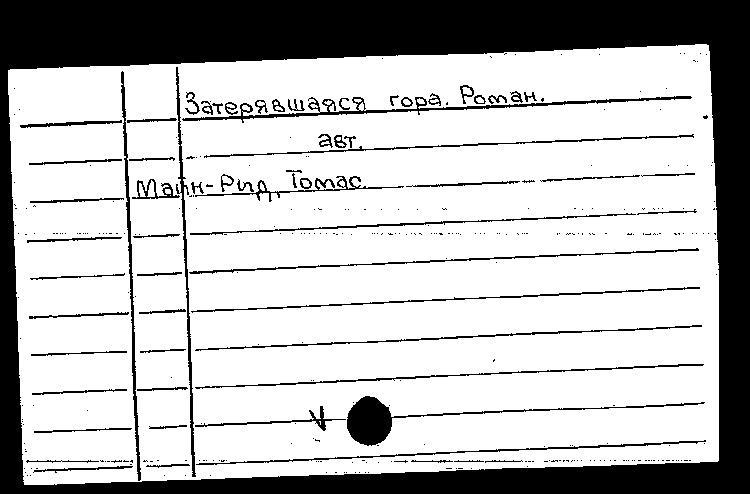 Затерявшаяся гора. Роман.
авт.
Майн-Рид, Томас.
V